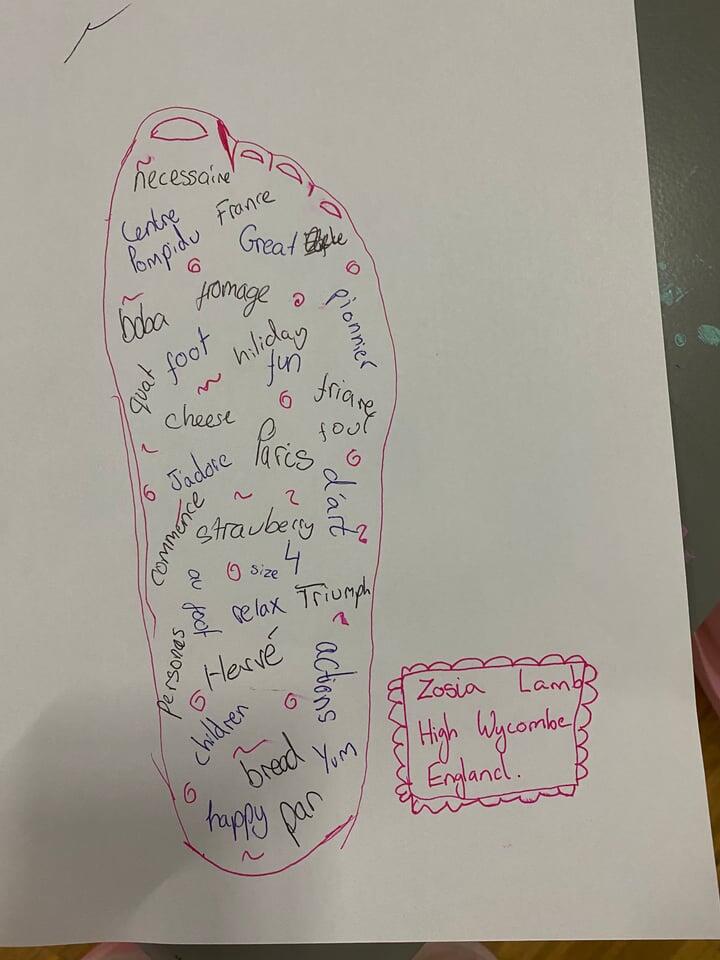 necessaire
France
Centre
Pompidu
Great
fromage
boba
pionnier
foot
hiliday
fun
quat
cheese
friane
foul
Paris
J'adore
d'art
commence
strauberry
size 4
relax
Triumph
Personas
Hervé
actions
children
bread
Yum
happy
pan
Zosia Lamb
High Wycombe
England.